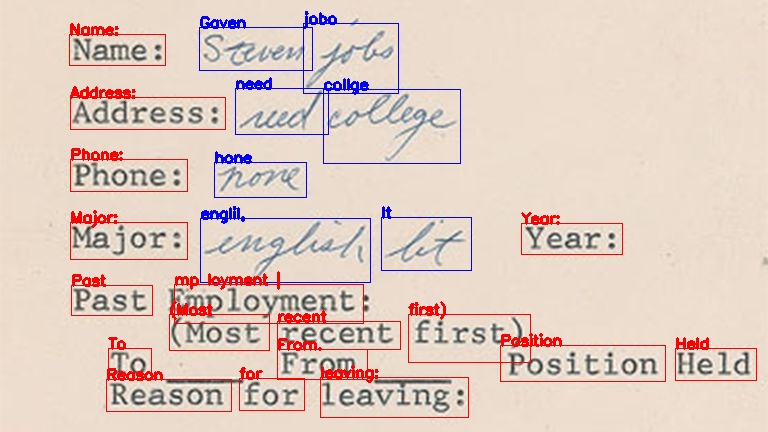 Name: Gaven jobo
Name: Steven jobs
Address: need collge
Address: reed college
Phone: hone
Phone: none
Major: englil, It Year:
Major: english lit Year:
Past mp loyment |
Past Employment:
(Most recent first)
(Most recent first)
To From. Position Held
To ____ From ____ Position Held
Reason for leaving:
Reason for leaving: